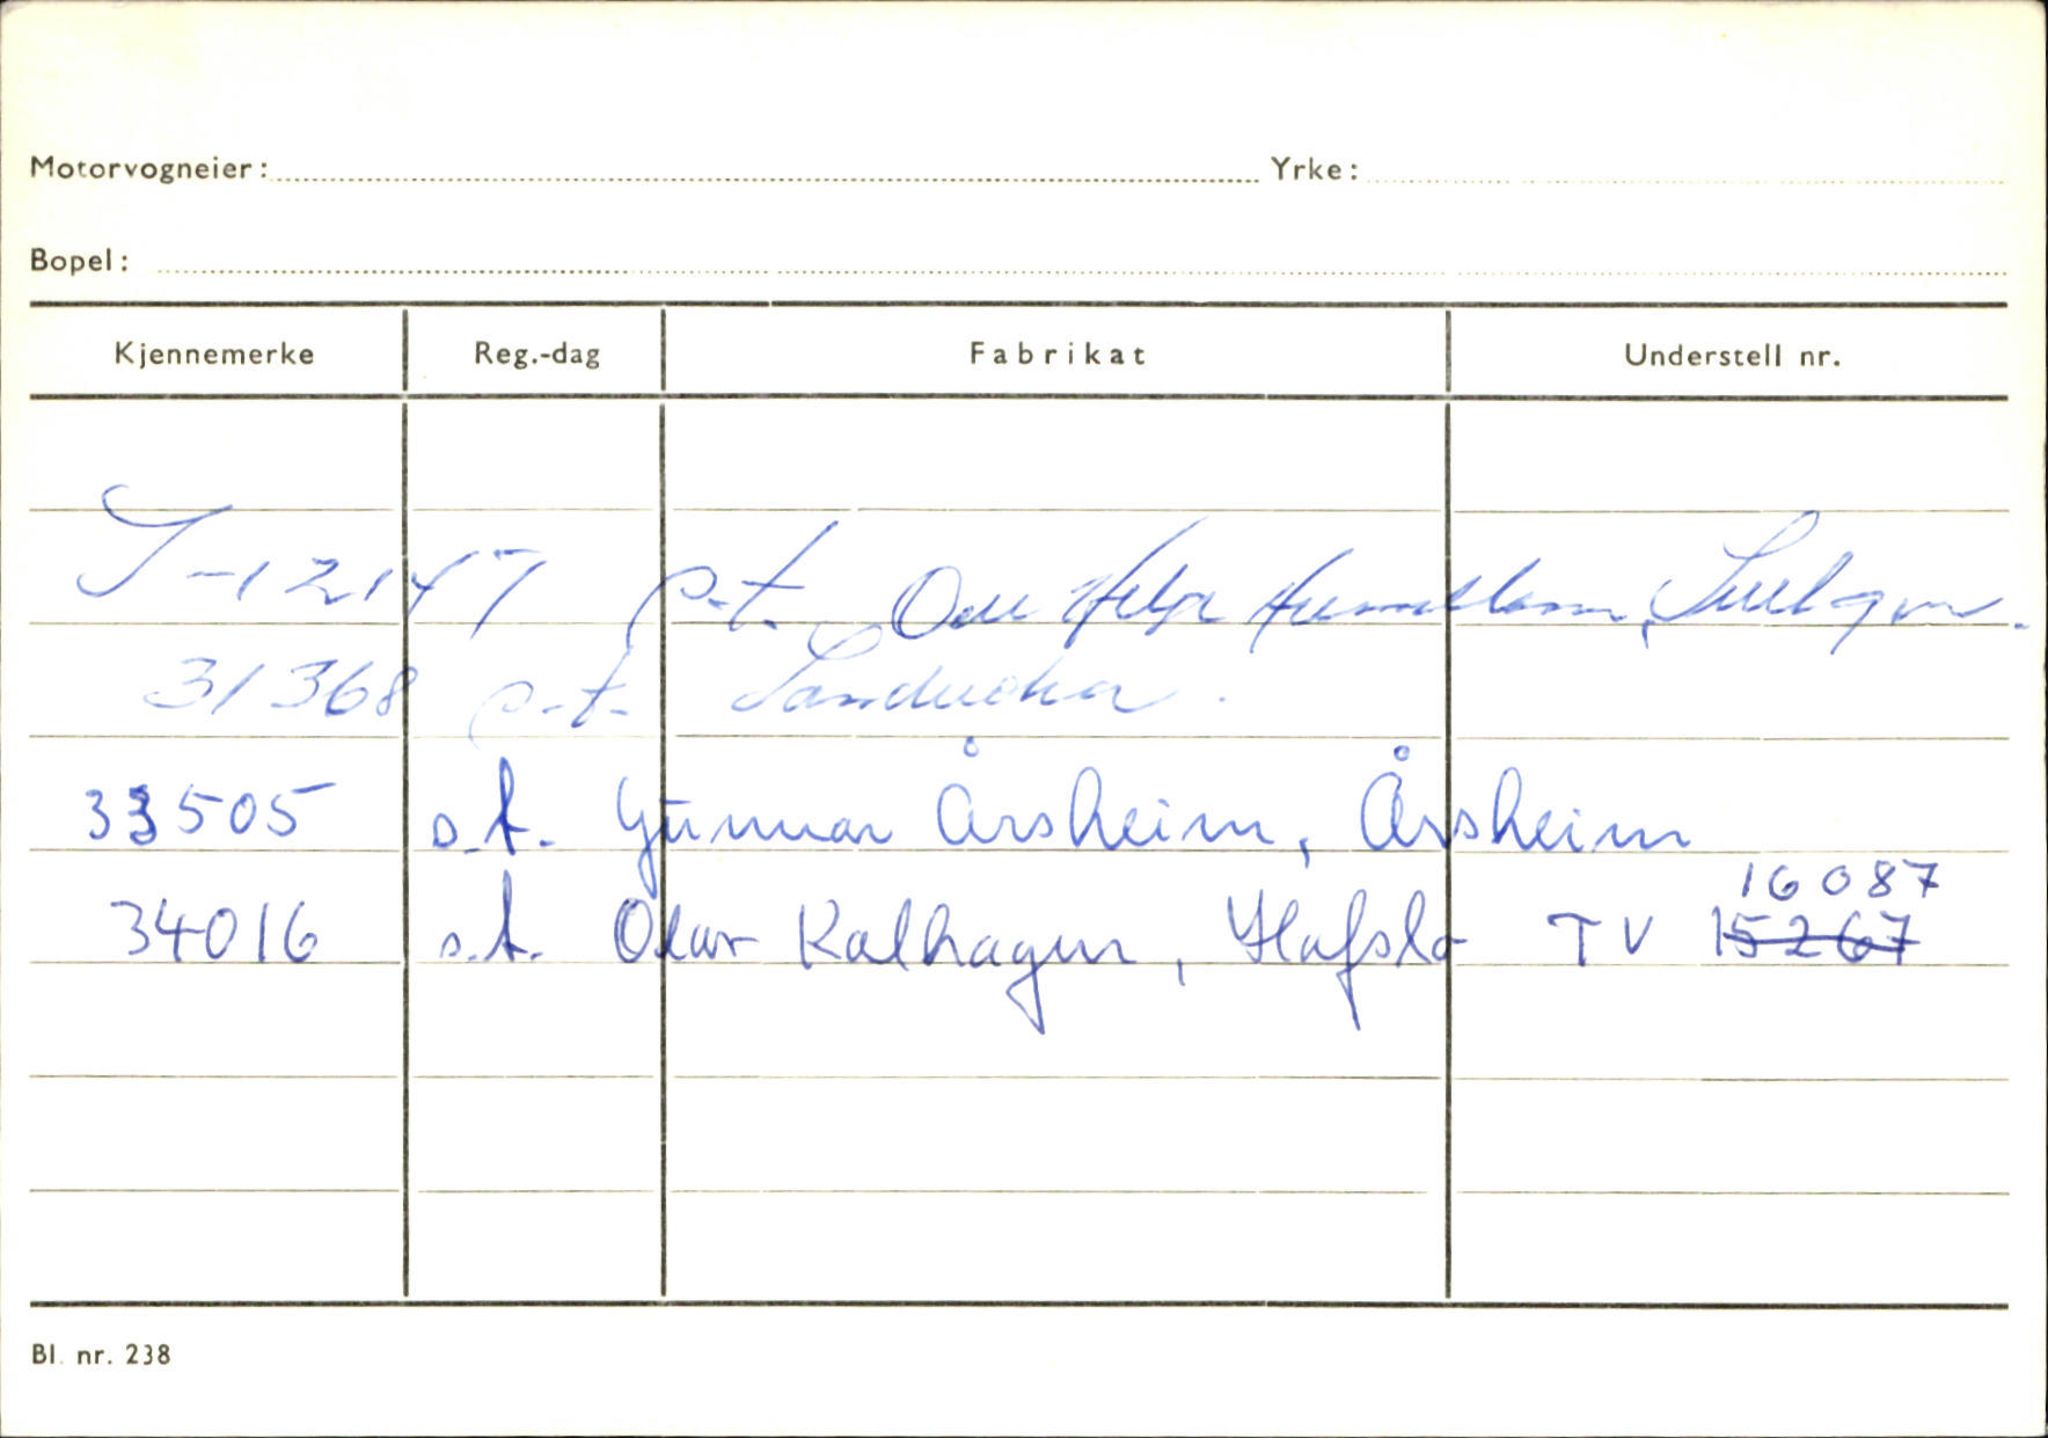 Motorvogneier: Yrke:
Bopel:
Kjennemerke Reg.-dag Fabrikat Understell nr.
S-12147 s.t. Helge
31368 s.t.
33505 s.t. Gunnar Årsheim, Årsheim
16087
34016 s.t. Olav Kalhagen, Hafslo TV 15267
Bl. nr. 238